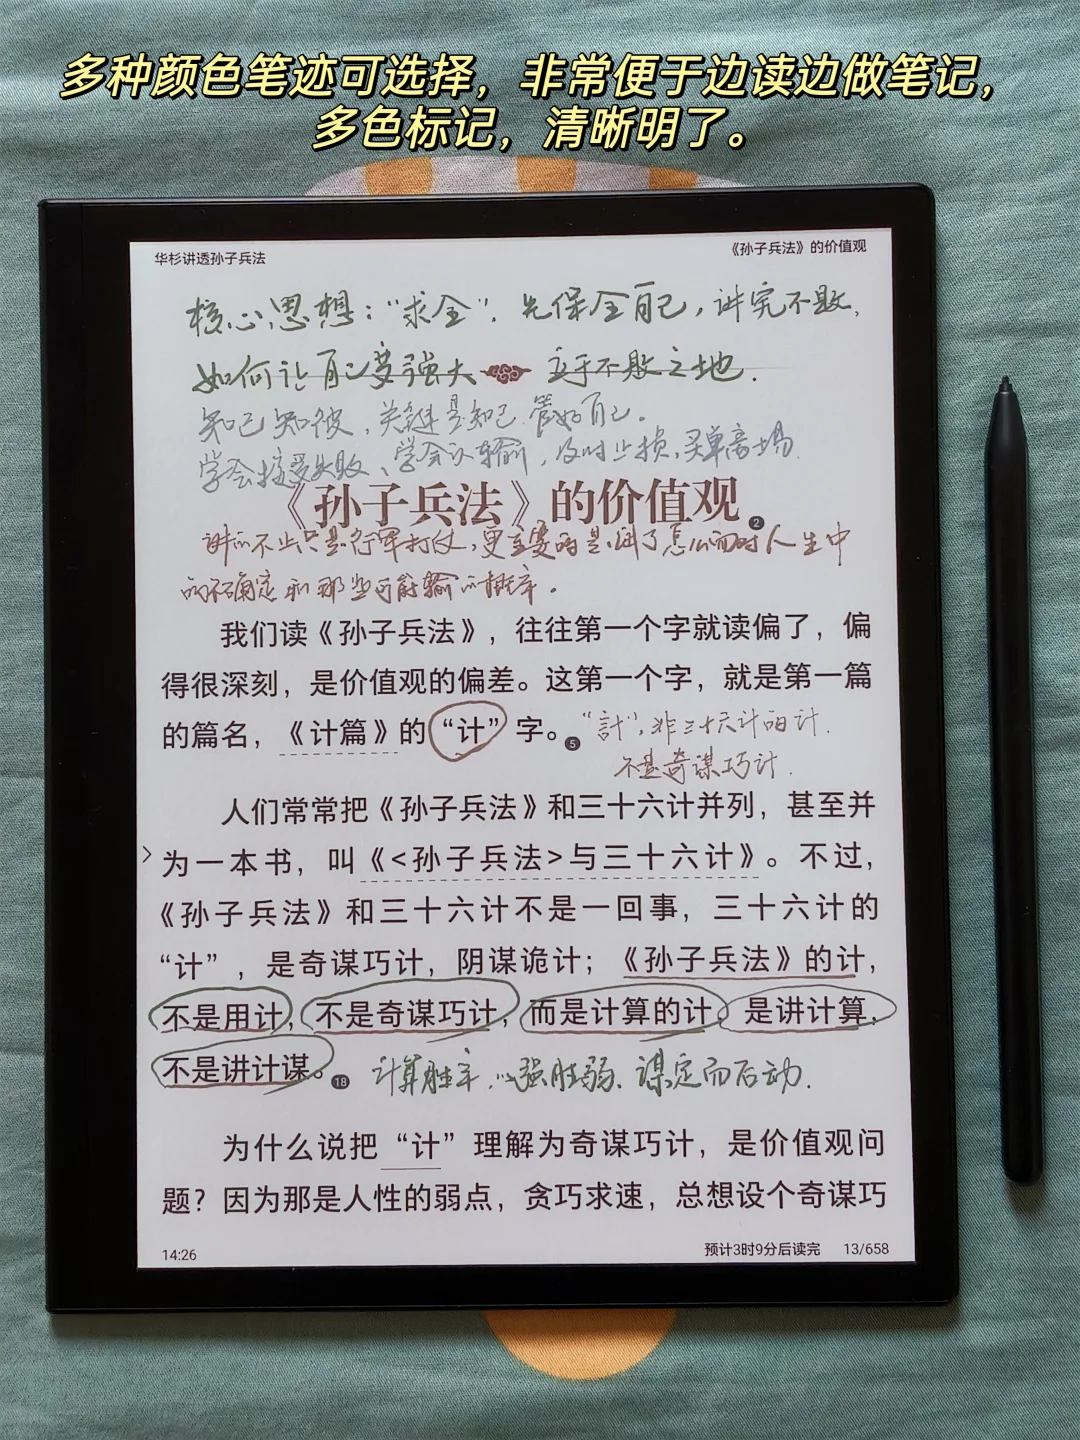 多种颜色笔迹可选择，非常便于边读边做笔记，
多色标记，清晰明了。
华杉讲透孙子兵法
《孙子兵法》的价值观
核心思想：“求全”，先保全自己，讲究不败，
如何让自己变强大 立于不败之地.
知己知彼，关键是知己.管好自己。
学会接受失败、学会认输，及时止损，买单离场.
《孙子兵法》的价值观 2
讲的不止只是行军打仗，更主要的是，讲了怎么面对人生中
的不确定和那些可能输的概率。
我们读《孙子兵法》，往往第一个字就读偏了，偏
得很深刻，是价值观的偏差。这第一个字，就是第一篇
的篇名，《计篇》的“计”字。 5
“計”，非三十六计的计.
不是奇谋巧计.
人们常常把《孙子兵法》和三十六计并列，甚至并
为一本书，叫《<孙子兵法>与三十六计》。不过，
《孙子兵法》和三十六计不是一回事，三十六计的
“计”，是奇谋巧计，阴谋诡计；《孙子兵法》的计，
不是用计，不是奇谋巧计，而是计算的计，是讲计算，
不是讲计谋。 18 计算胜率，以强胜弱、谋定而后动.
为什么说把“计”理解为奇谋巧计，是价值观问
题？因为那是人性的弱点，贪巧求速，总想设个奇谋巧
14:26
预计3时9分后读完 13/658